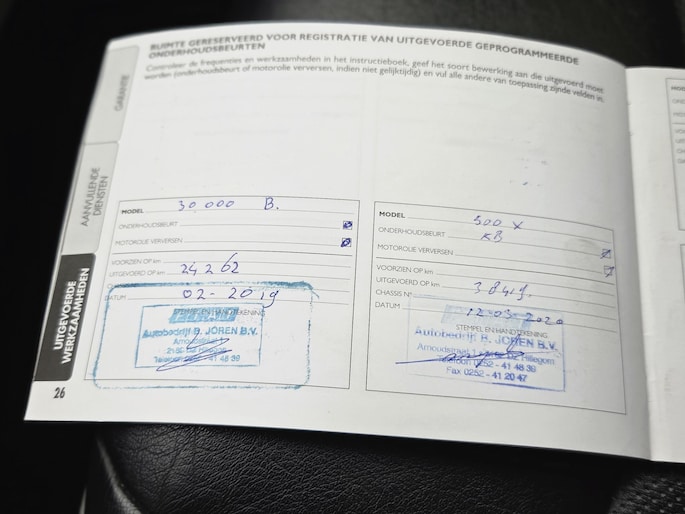 RUIMTE GERESERVEERD VOOR REGISTRATIE VAN UITGEVOERDE GEPROGRAMMEERDE
ONDERHOUDSBEURTEN
Controleer de frequenties en werkzaamheden in het instructieboek, geef het soort bewerking aan die uitgevoerd moet
worden (onderhoudsbeurt of motorolie verversen, indien niet gelijktijdig) en vul alle andere van toepassing zijnde velden in.
GARANTIE
AANVULLENDE
DIENSTEN
UITGEVOERDE
WERKZAAMHEDEN
26
MODEL 30 000 B.
ONDERHOUDSBEURT
MOTOROLIE VERVERSEN
VOORZIEN OP km
UITGEVOERD OP km 24262
DATUM 02-2019
STEMPEL EN HANDTEKENING
Autobedrijf B. JOREN B.V.
Telefoon 0252 - 41 48 39
MODEL 500 X
ONDERHOUDSBEURT KB
MOTOROLIE VERVERSEN
VOORZIEN OP km
UITGEVOERD OP km
CHASSIS N°
DATUM 12-03-2020
STEMPEL EN HANDTEKENING
Autobedrijf B. JOREN B.V.
Hillegom
Telefoon 0252 - 41 48 39
Fax 0252 - 41 20 47